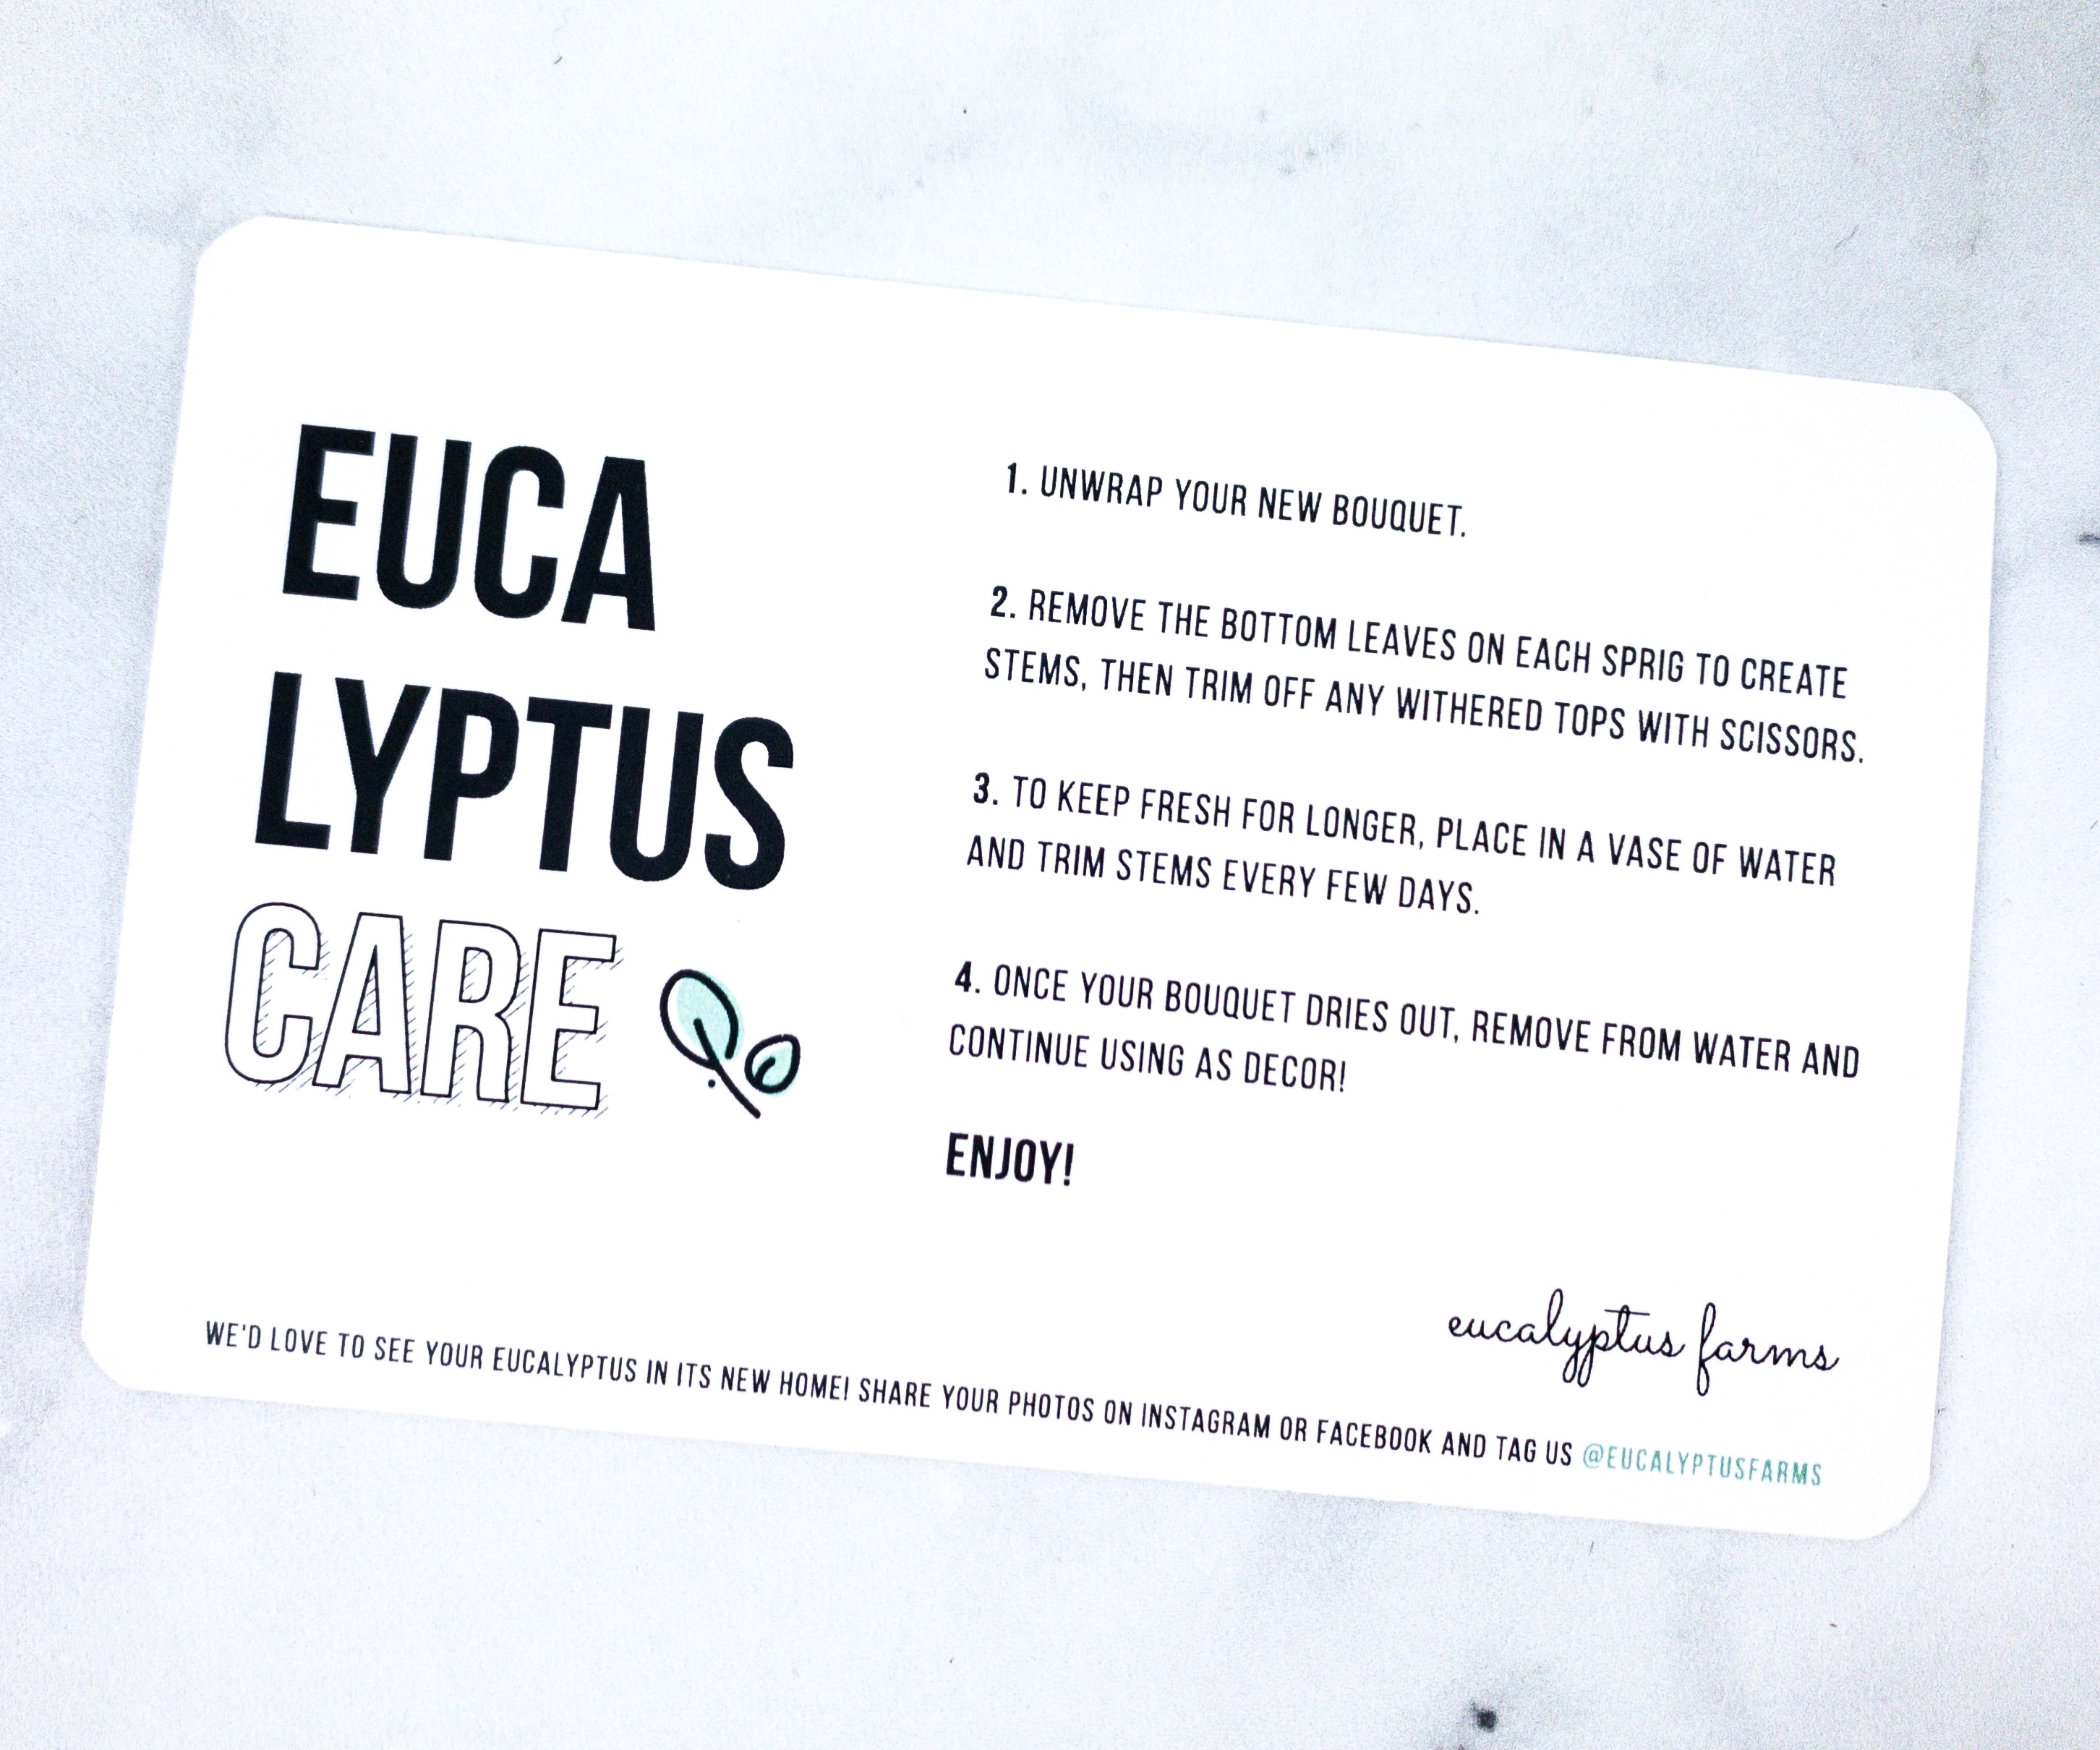 EUCA
LYPTUS
CARE
1. UNWRAP YOUR NEW BOUQUET.
2. REMOVE THE BOTTOM LEAVES ON EACH SPRIG TO CREATE
STEMS, THEN TRIM OFF ANY WITHERED TOPS WITH SCISSORS.
3. TO KEEP FRESH FOR LONGER, PLACE IN A VASE OF WATER
AND TRIM STEMS EVERY FEW DAYS.
4. ONCE YOUR BOUQUET DRIES OUT, REMOVE FROM WATER AND
CONTINUE USING AS DECOR!
ENJOY!
eucalyptus farms
WE'D LOVE TO SEE YOUR EUCALYPTUS IN ITS NEW HOME! SHARE YOUR PHOTOS ON INSTAGRAM OR FACEBOOK AND TAG US @EUCALYPTUSFARMS